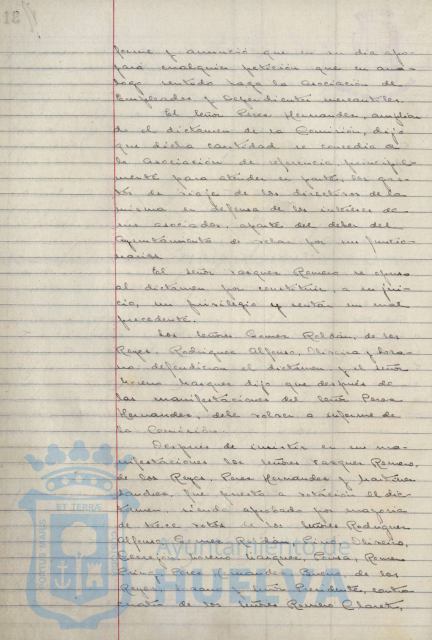 forme y anunció que en su dia apo-
yará cualquier petición que en aná-
logo sentido haga la Asociación de
Empleados y Dependientes mercantiles.
El señor Perez Hernandez, amplian-
do el dictámen de la Comisión, dijo
que dicha cantidad se concedia a
la Asociación de referencia, principal-
mente para atender en parte, los gas-
tos de viaje de los directivos de la
misma en defensa de los intereses de
sus asociados, aparte del deber del
Ayuntamiento de velar por sus funcio-
narios.
El señor Vasquez Romero se opuso
al dictámen por constituir, a su jui-
cio, un privilegio y sentar un mal
precedente.
Los señores Gomez Roldán, de los
Reyes, Rodriguez Alfonso,
defendieron el dictámen y el señor
Moreno Marquez dijo que después de
las manifestaciones del señor Perez
Hernandez, debe volver a informe de
la Comisión.
Despues de insistir en sus ma-
nifestaciones los señores Vasquez Romero,
de los Reyes, Perez Hernandez y
fué puesto a votación el dic-
tamen siendo aprobado por mayoria
de trece votos de los señores Rodriguez
Alfonso, Gomez Roldán, Pino,
Marquez,
Perez Hernandez, de los
Reyes, y señor Presidente, contra
cuatro de los señores Romero Claret,
Ayuntamiento de
HUELVA
PORTUS MARIS
ET TERRAE